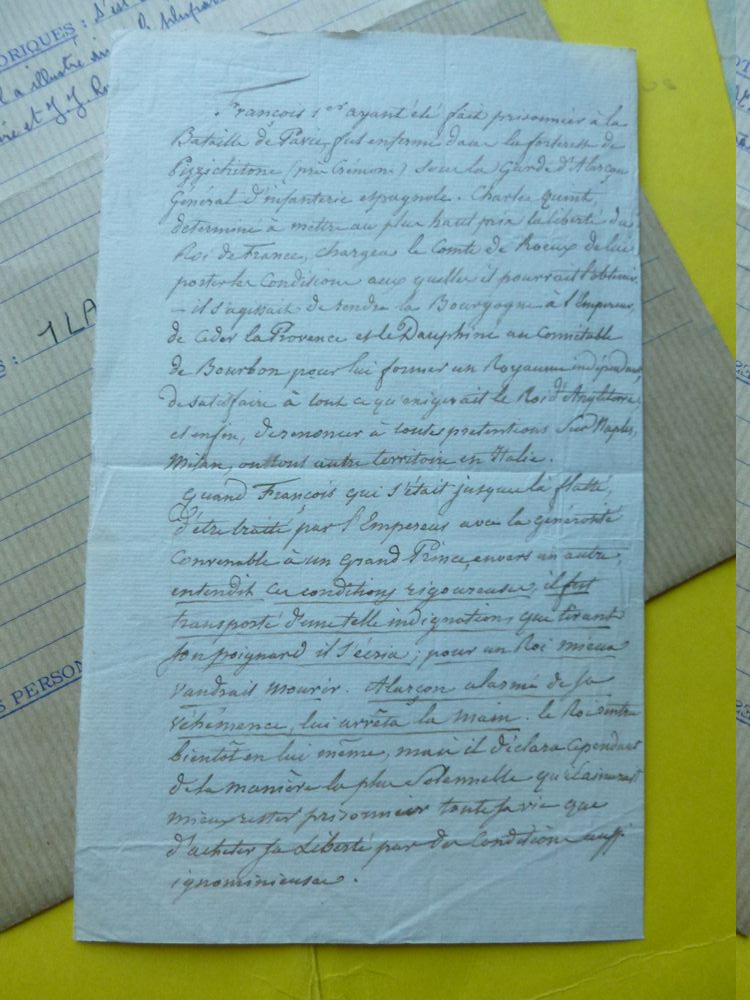 ORIQUES : s'est
l a illustré
ire et J J. Ro
1 LA
S :
S PERSON
François 1er ayant été fait prisonnier à la
Bataille de Pavie, fut enfermé dans la forteresse de
Pizzichitone (près Crémone) sous la Garde d'Alarçon
Général d'infanterie espagnole. Charles quint,
determiné à mettre au plus haut prix la liberté du
Roi de France, chargea le Comte de Roeux de lui
porter les Conditions aux quelles il pourrait l'obtenir
— il s'agissait de rendre la Bourgogne à l'Empereur,
de Céder la Provence et le Dauphiné au Connétable
de Bourbon pour lui former un Royaume indépendant,
de satisfaire à tout ce qu'exigerait le Roi d'Angleterre
et enfin, de renoncer à toutes pretentions sur Naples,
Milan, ou tous autre territoire en Italie.
Quand François qui s'était jusques là flatté,
d'être traité par l'Empereur avec la générosité
Convenable à un grand Prince, envers un autre,
entendit ces conditions rigoureuses, il fut
transporté d'une telle indignation, que tirant
son poignard il s'écria ; pour un Roi mieux
vaudrait mourir. Alarçon alarmé de sa
véhémence, lui arrêta la main. le Roi rentra
bientôt en lui même, mais il déclara cependant
de la manière la plus solennelle qu'il aimerait
mieux rester prisonnier toute sa vie que
d'acheter sa Liberté par des Conditions aussi
ignominieuses.